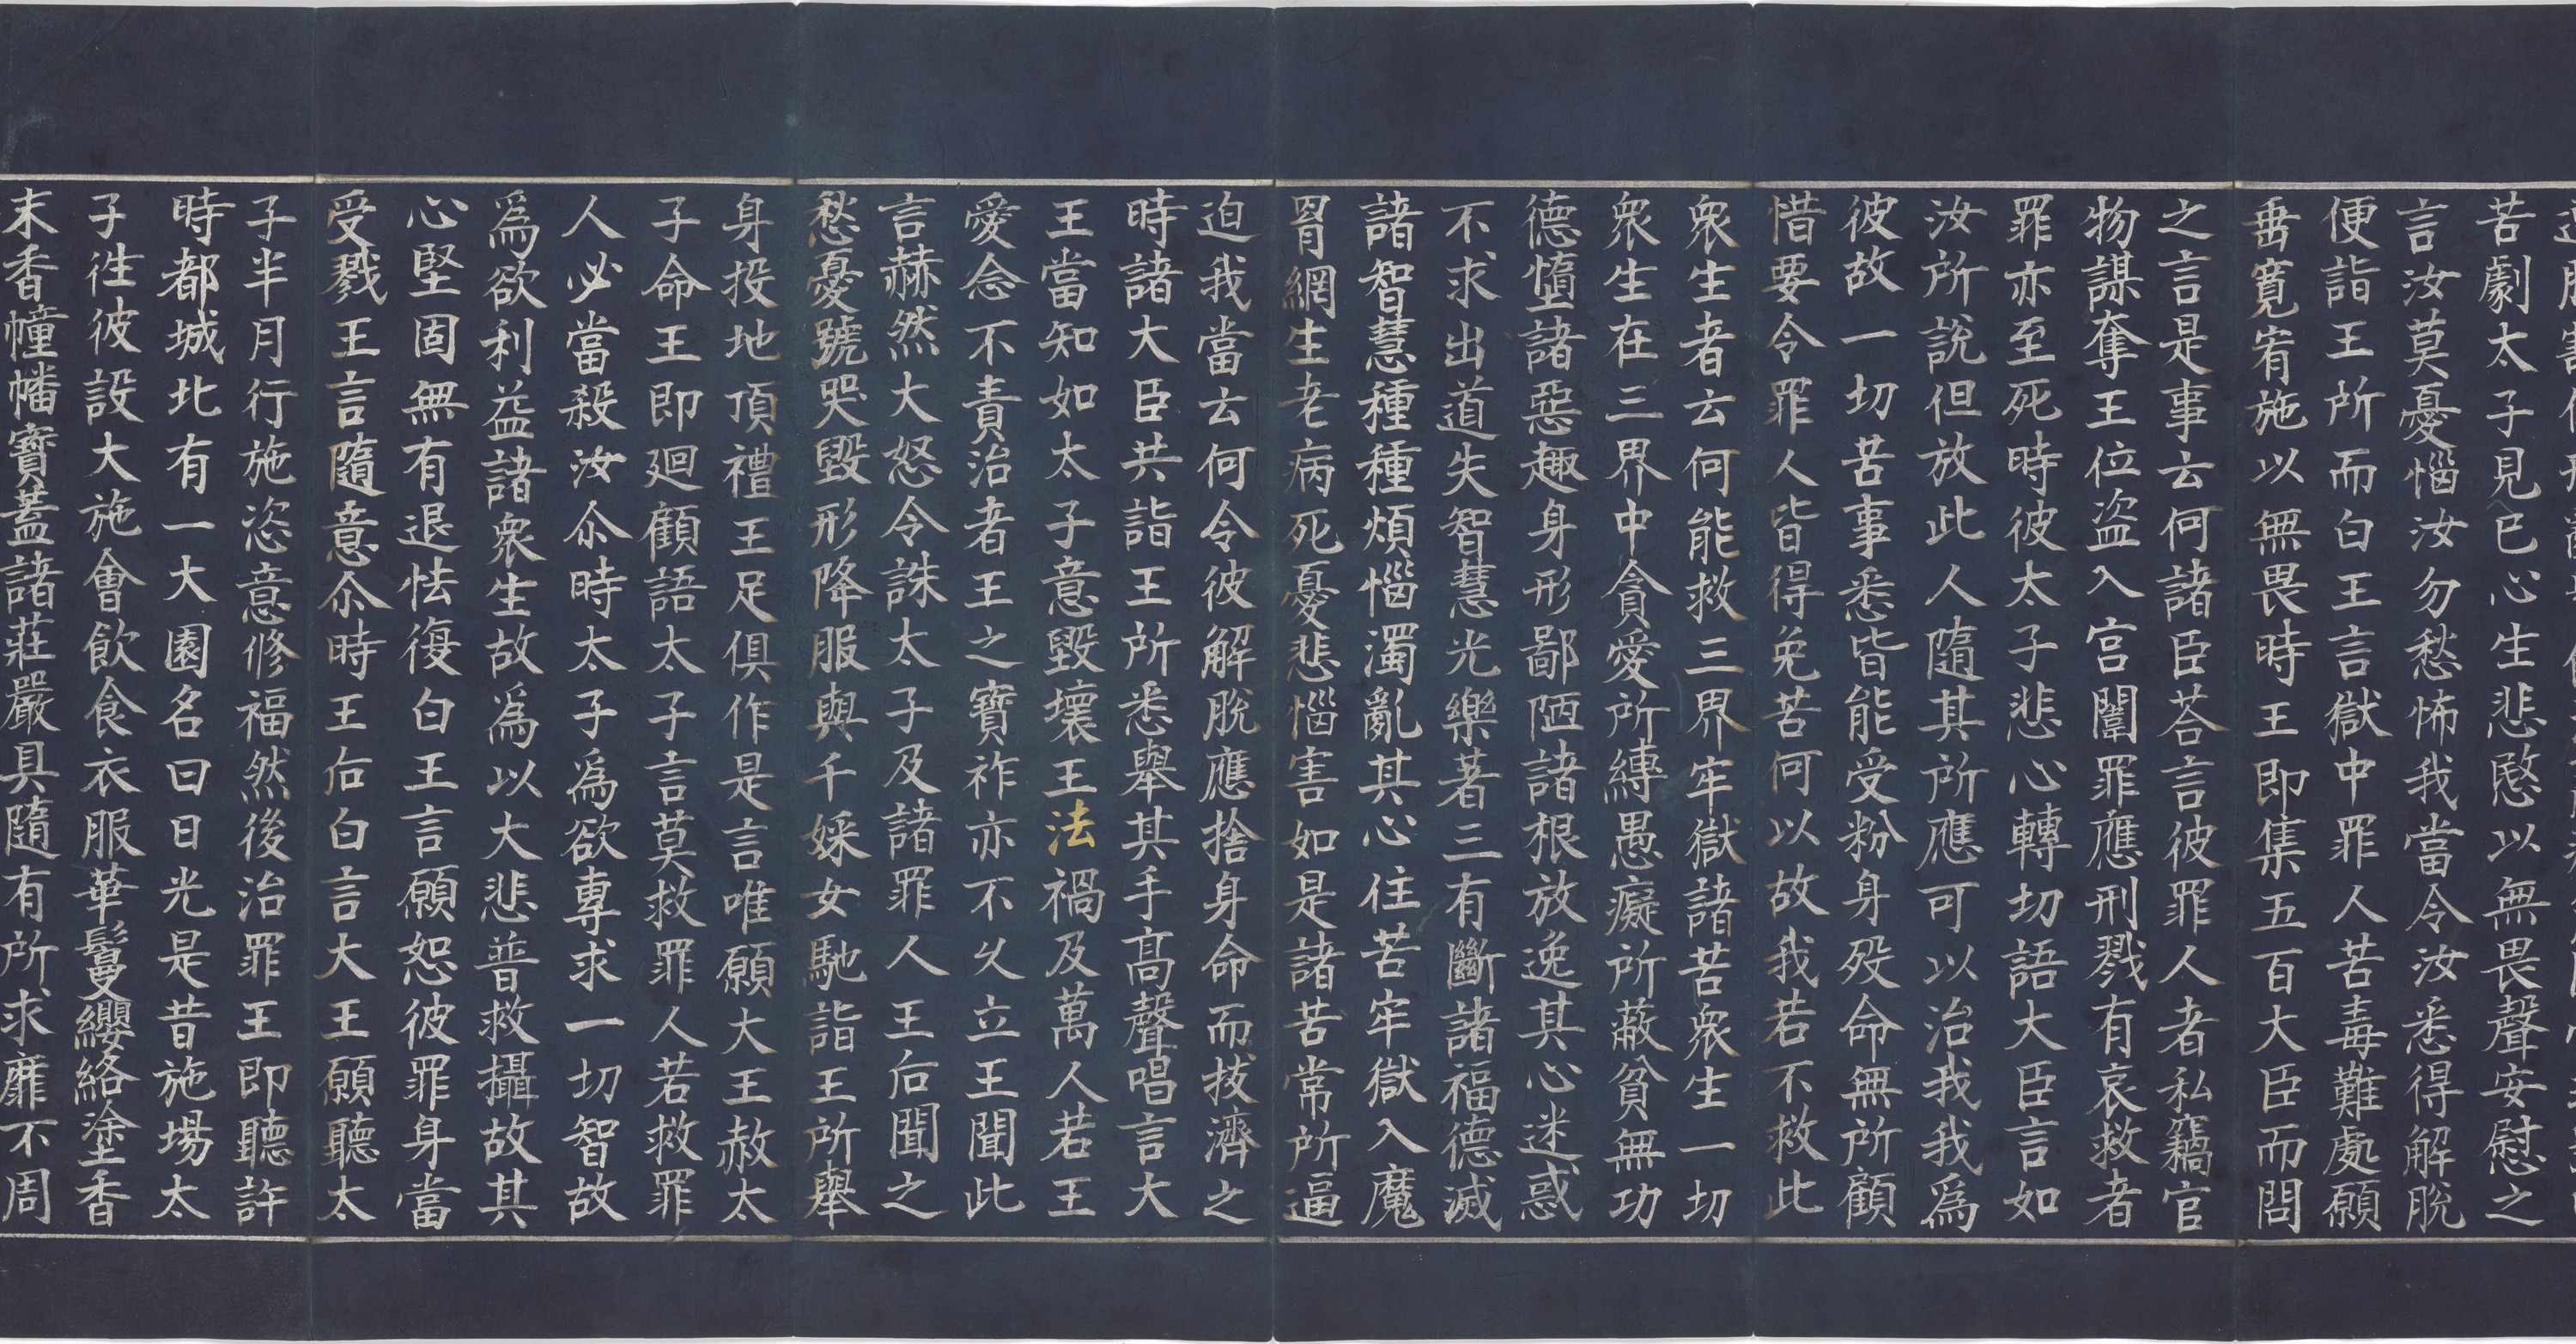 苦劇太子見已心生悲愍以無畏聲安慰之
言汝莫憂惱汝勿愁怖我當令汝悉得解脫
便詣王所而白王言獄中罪人苦毒難處願
垂寬宥施以無畏時王即集五百大臣而問
之言是事云何諸臣荅言彼罪人者私竊官
物謀奪王位盜入宮闈罪應刑戮有哀救者
罪亦至死時彼太子悲心轉切語大臣言如
汝所說但放此人隨其所應可以治我我爲
彼故一切苦事悉皆能受粉身歿命無所顧
惜要令罪人皆得免苦何以故我若不救此
衆生者云何能救三界牢獄諸苦衆生一切
衆生在三界中貪愛所縛愚癡所蔽貧無功
德墮諸惡趣身形鄙陋諸根放逸其心迷惑
不求出道失智慧光樂著三有斷諸福德滅
諸智慧種種煩惱濁亂其心住苦牢獄入魔
罥網生老病死憂悲惱害如是諸苦常所逼
迫我當云何令彼解脫應捨身命而拔濟之
時諸大臣共詣王所悉舉其手高聲唱言大
王當知如太子意毀壞王法禍及萬人若王
愛念不責治者王之寶祚亦不久立王聞此
言赫然大怒令誅太子及諸罪人王后聞之
愁憂號哭毀形降服與千婇女馳詣王所舉
身投地頂禮王足俱作是言唯願大王赦太
子命王即迴顧語太子言莫救罪人若救罪
人必當殺汝尒時太子爲欲專求一切智故
爲欲利益諸衆生故爲以大悲普救攝故其
心堅固無有退怯復白王言願恕彼罪身當
受戮王言隨意尒時王后白言大王願聽太
子半月行施恣意修福然後治罪王即聽許
時都城北有一大園名曰日光是昔施場太
子往彼設大施會飲食衣服華鬘纓絡塗香
末香幢幡寶蓋諸莊嚴具隨有所求靡不周